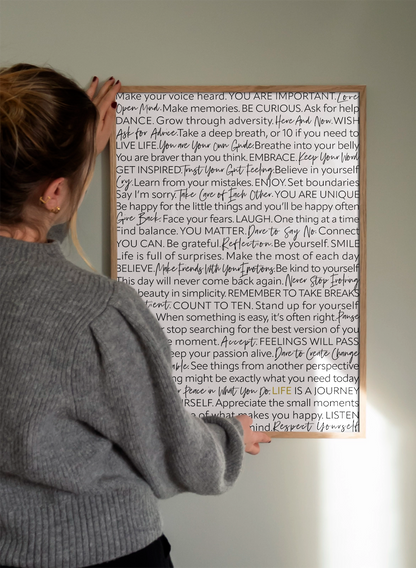 Make your voice heard. YOU ARE IMPORTANT. Love
Open Mind. Make memories. BE CURIOUS. Ask for help
DANCE. Grow through adversity. Here And Now. WISH
Ask for Advice. Take a deep breath, or 10 if you need to
LIVE LIFE. You are Your Own Guide. Breathe into your belly
You are braver than you think. EMBRACE. Keep Your Word
GET INSPIRED. Trust Your Gut Feeling. Believe in yourself
Cry. Learn from your mistakes. ENJOY. Set boundaries
Say I'm sorry. Take Care of Each Other. YOU ARE UNIQUE
Be happy for the little things and you'll be happy often
Give Back. Face your fears. LAUGH. One thing at a time
Find balance. YOU MATTER. Dare to Say No. Connect
YOU CAN. Be grateful. Reflection. Be yourself. SMILE
Life is full of surprises. Make the most of each day
BELIEVE. Make Friends With Your Emotions. Be kind to yourself
This day will never come back again. Never Stop Exploring
beauty in simplicity. REMEMBER TO TAKE BREAKS
COUNT TO TEN. Stand up for yourself
When something is easy, it's often right. Pause
stop searching for the best version of you
e moment. Accept. FEELINGS WILL PASS
eep your passion alive. Dare to Create Change
able. See things from another perspective
ng might be exactly what you need today
Peace in What You Do. LIFE IS A JOURNEY
RSELF. Appreciate the small moments
of what makes you happy. LISTEN
mind. Respect Yourself